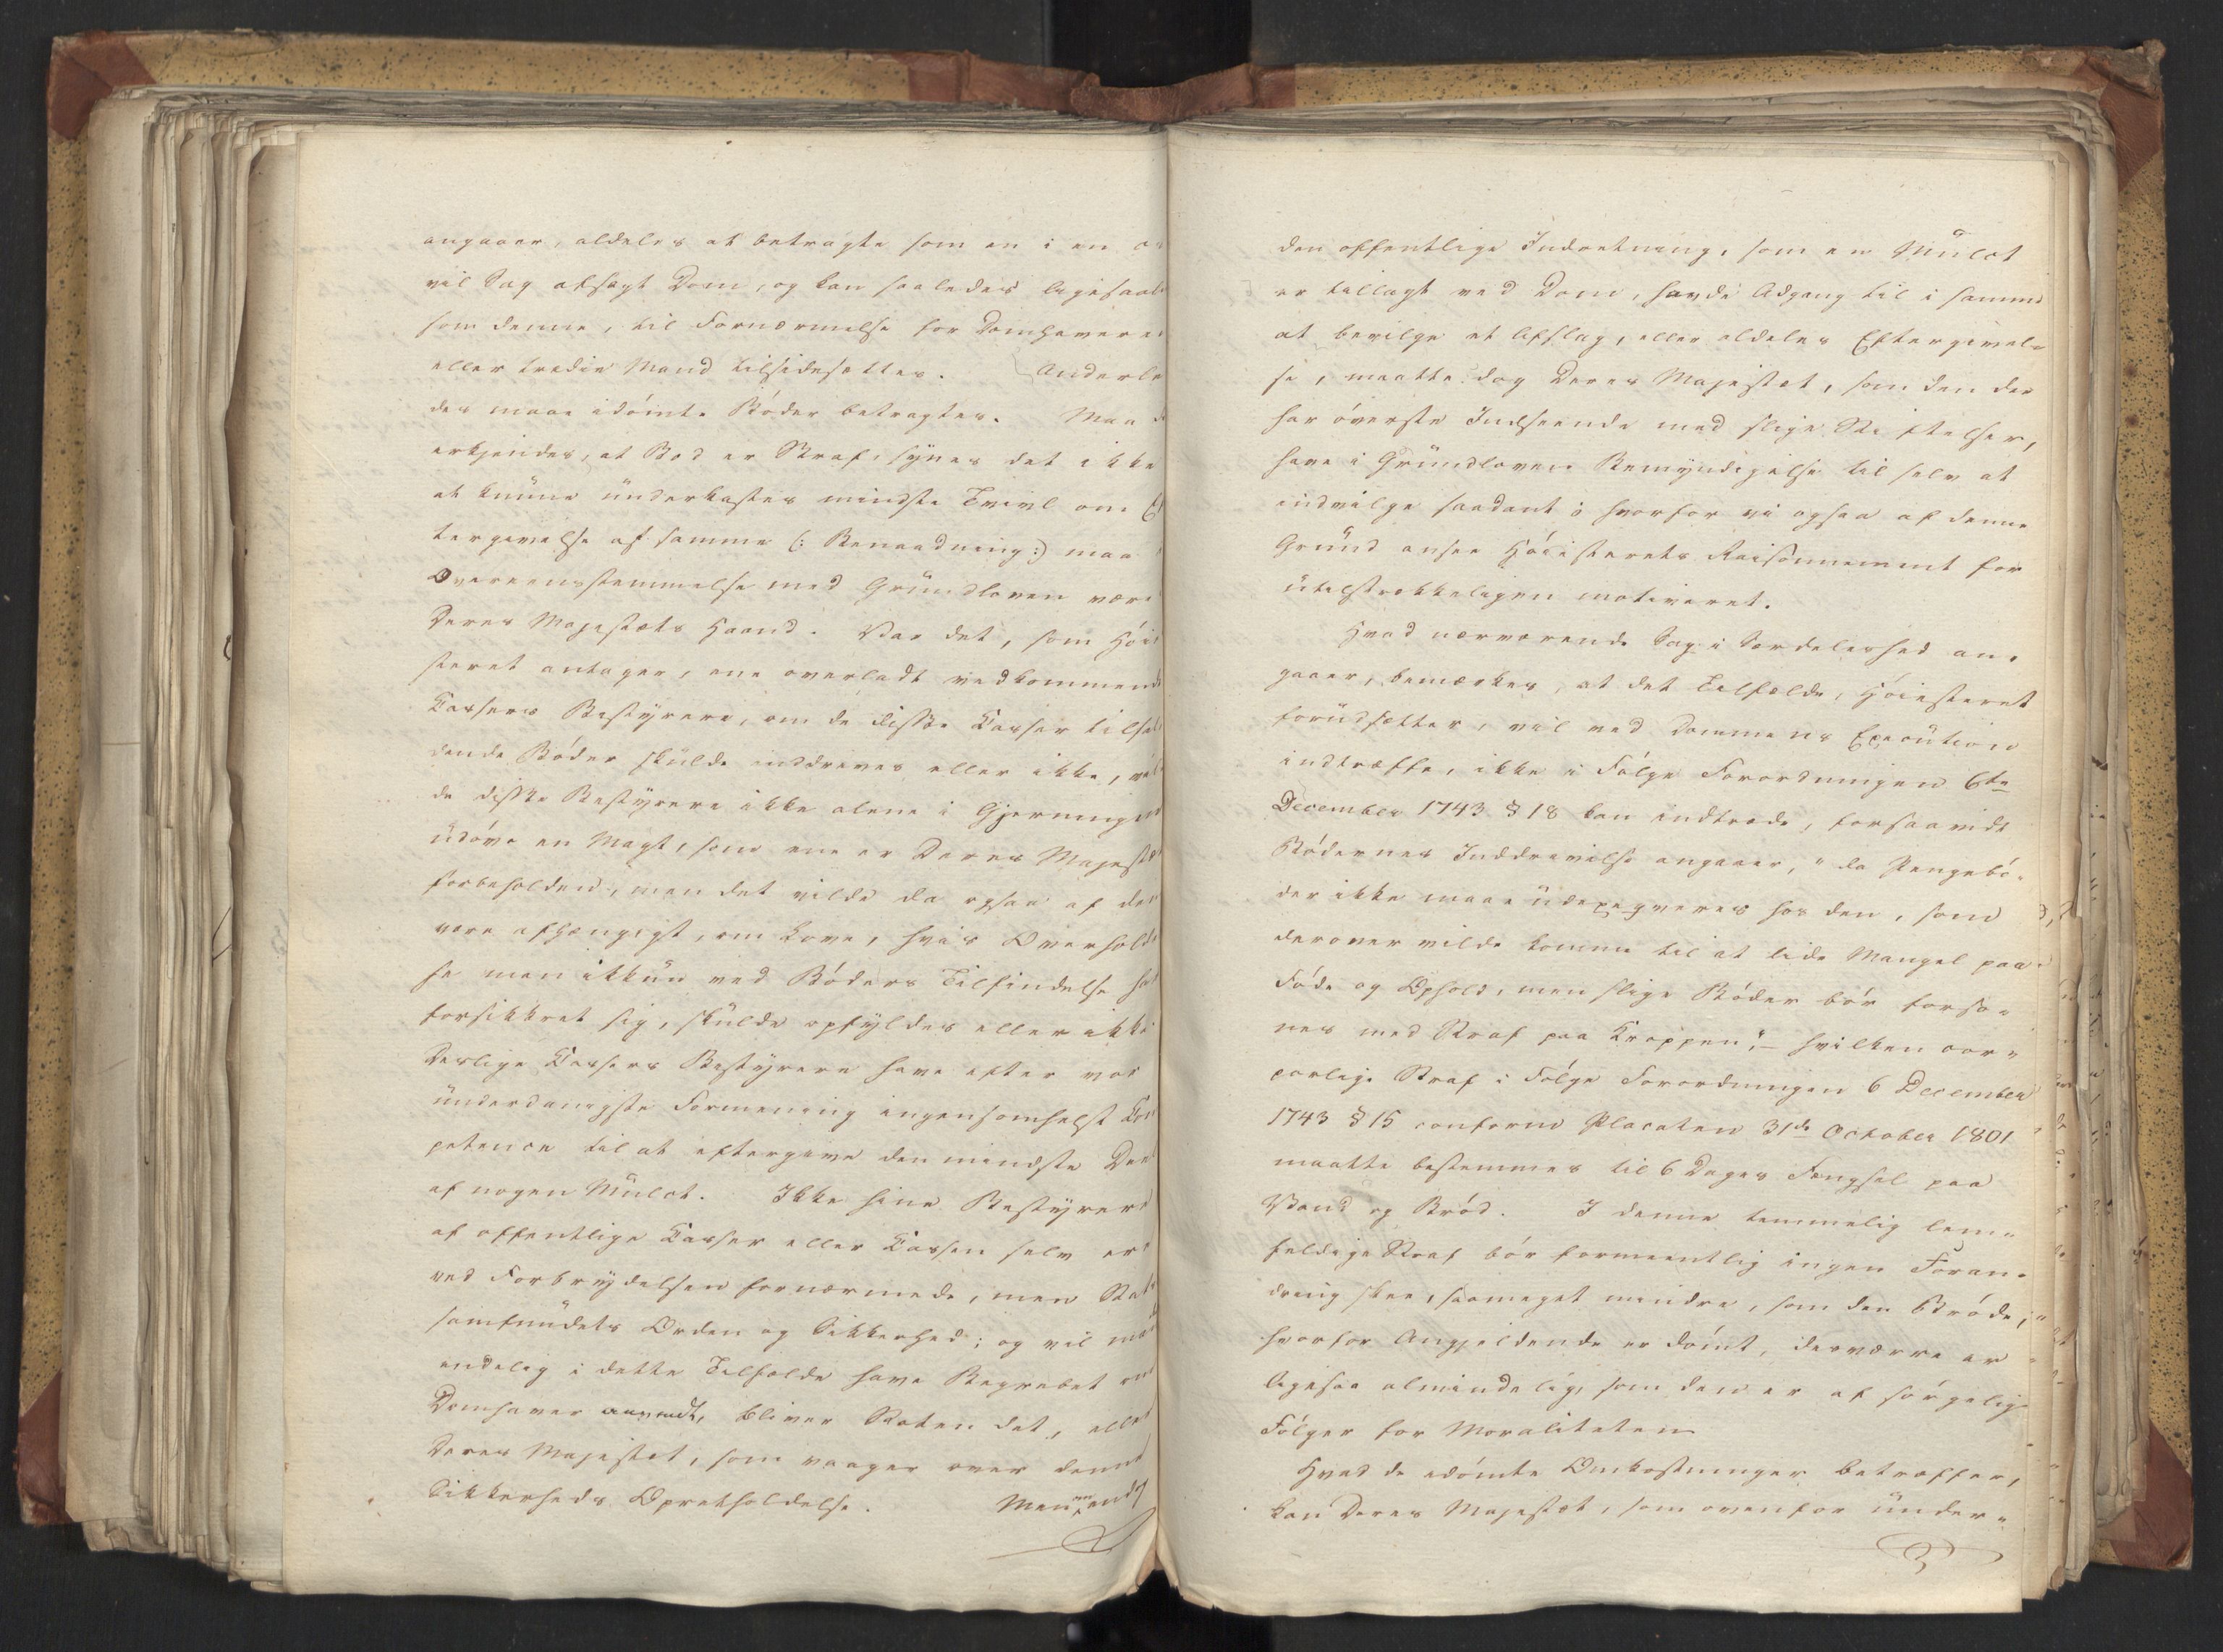 angaaer, aldeles at betragte som en i en ci
vil Sag afsagt Dom, og kan saaledes ligesaalidt
som denne, til Fornærmelse for Domhaveren
eller tredie Mand tilsidesættes. Anderle
des maae idømte Bøder betragtes. Maa d
erkjendes, at Bod er Straf, synes det ikke
at kunne underkastes mindste Tvivl om Ef
tergivelse af samme (: Benaadning :) maa i
Overeensstemmelse med Grundloven være
Deres Majestæts Haand. Var det, som Høie
steret antager, ene overladt vedkommende
Cassers Bestyrere, om de disse Casser tilfal
dende Bøder skulde inddrives eller ikke, vil
de disse Bestyrere ikke alene i Gjerningen
udøve en Magt, som ene er Deres Majestæt
forbeholden, men det vilde da ogsaa af dem
være afhængigt, om Love, hvis Overholdel
se man ikkun ved Bøders Tilfindelse har
forsikkret sig, skulde opfyldes eller ikke.
Deslige Cassers Bestyrere have efter vor
underdanigste Formening ingensomhelst Com
petence til at eftergive den mindste Deel
af nogen Mulct. Ikke hine Bestyrere
af offentlige Casser eller Cassen selv ere
ved Forbrydelsen fornærmede, men Stats
samfundets Orden og Sikkerhed; og vil man
endelig i dette Tilfælde have Begrebet om
Domhaver anvendt, bliver Staten det, eller
Deres Majestæt, som vaager over denne
Sikkerheds Opretholdelse. Men om end
den offentlige Indretning, som en Mulct
er tillagt ved Dom, havde Adgang til i samme
at bevilge et Afslag, eller aldeles Eftergivel-
se, maatte dog Deres Majestæt, som den der
har øverste Indseende med slige Stiftelser,
have i Grundloven Bemyndigelse til selv at
indvilge saadant; hvorfor vi ogsaa af denne
Grund ansee Høiesterets Raisonnement for
utilstrækkeligen motiveret.
Hvad nærværende Sag i Særdeleshed an-
gaaer, bemærkes, at det Tilfælde, Høiesteret
forudsætter, vil ved Dommens Execution
indtræffe, ikke i Følge Forordningen 6te
December 1743 § 18 kan indtræde, forsaavidt
Bødernes Inddrivelse angaaer, "da Pengebø-
der ikke maae udexeqveres hos den, som
derover vilde komme til at lide Mangel paa
Føde og Ophold, men slige Bøder bør forso-
nes med Straf paa Kroppen", – hvilken cor-
porlige Straf i Følge Forordningen 6 December
1743 § 15 conform Placaten 31de October 1801
maatte bestemmes til 6 Dages Fængsel paa
Vand og Brød. I denne temmelig lem-
fældige Straf bør formeentlig ingen Foran-
dring skee, saameget mindre, som den Brøde,
hvorfor Angjeldende er dømt, desværre er
ligesaa almindelig, som den er af sørgelige
Følger for Moraliteten
Hvad de idømte Omkostninger betræffer,
kan Deres Majestæt, som ovenfor under-